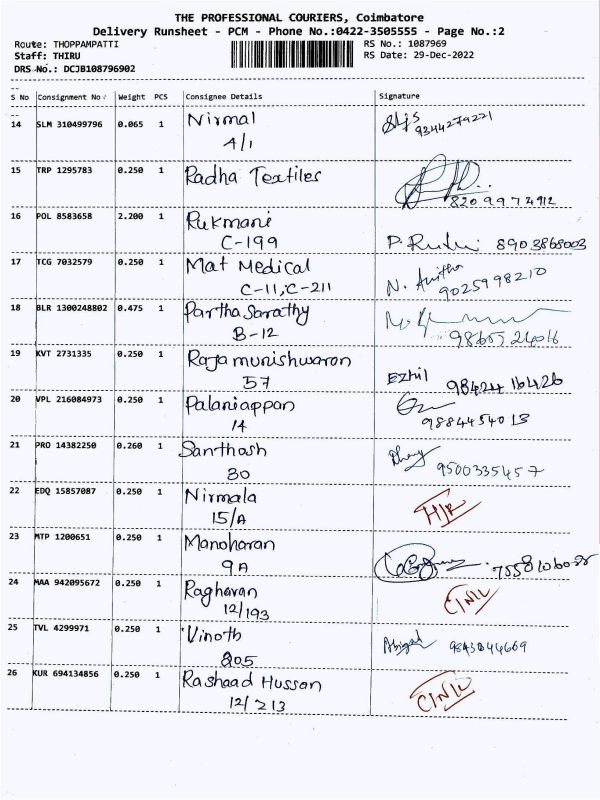 THE PROFESSIONAL COURIERS, Coimbatore
Delivery Runsheet - PCM - Phone No.:0422-3505555 - Page No.:2
Route: THOPPAMPATTI RS No.: 1087969
Staff: THIRU RS Date: 29-Dec-2022
DRS No.: DCJB108796902
S No Consignment No Weight PCS Consignee Details Signature
14 SLM 310499796 0.065 1 Nirmal
A/1 9344279221
15 TRP 1295783 0.250 1 Radha Textiles
16 POL 8583658 2.200 1 Rukmani
C-199 8903868003
17 TCG 7032579 0.250 1 Mat Medical N. Anitha
C-11, C-211 9025998210
18 BLR 1300248802 0.475 1 Partha Sarathy
B-12
19 KVT 2731335 0.250 1 Rajamunishwaran
57 Ezhil 9842416426
20 VPL 216084973 0.250 1 Palaniappan
14 9884454013
21 PRO 14382250 0.260 1 Santhosh
30 9500335457
22 EDQ 15857087 0.250 1 Nirmala
15/A
23 MTP 1200651 0.250 1 Manoharan
9A
24 MAA 942095672 0.250 1 Ragharan
12/193
25 TVL 4299971 0.250 1 Vinoth
205
26 KUR 694134856 0.250 1 Rashaad Hussan
12/213